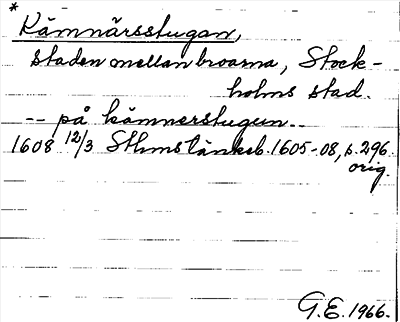 *
Kämnärsstugan,
staden mellan broarna, Stock-
holms stad.
-- på kämnerstugun..
1608 12/3 Sthms tänkeb. 1605-08, s. 296.
orig.
G.E. 1966.